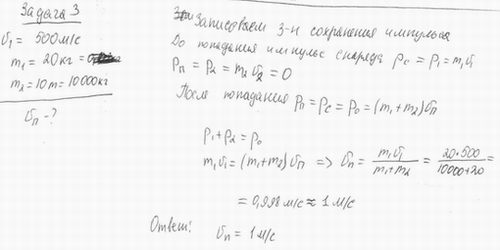 Задача 3
υ₁ = 500 м/с
m₁ = 20 кг =
m₂ = 10 т = 10000 кг
υп - ?
Записываем З-н сохранения импульса
До попадания импульс снаряда pс = p₁ = m₁υ₁
pп = p₂ = m₂ υ₂ = 0
После попадания pп = pс = p₀ = (m₁+m₂)υп
p₁ + p₂ = p₀
m₁υ₁ = (m₁+m₂)υп => υп = m₁υ₁ / (m₁+m₂) = 20·500 / (10000+20) =
= 0,998 м/с ≈ 1 м/с
Ответ: υп = 1 м/с